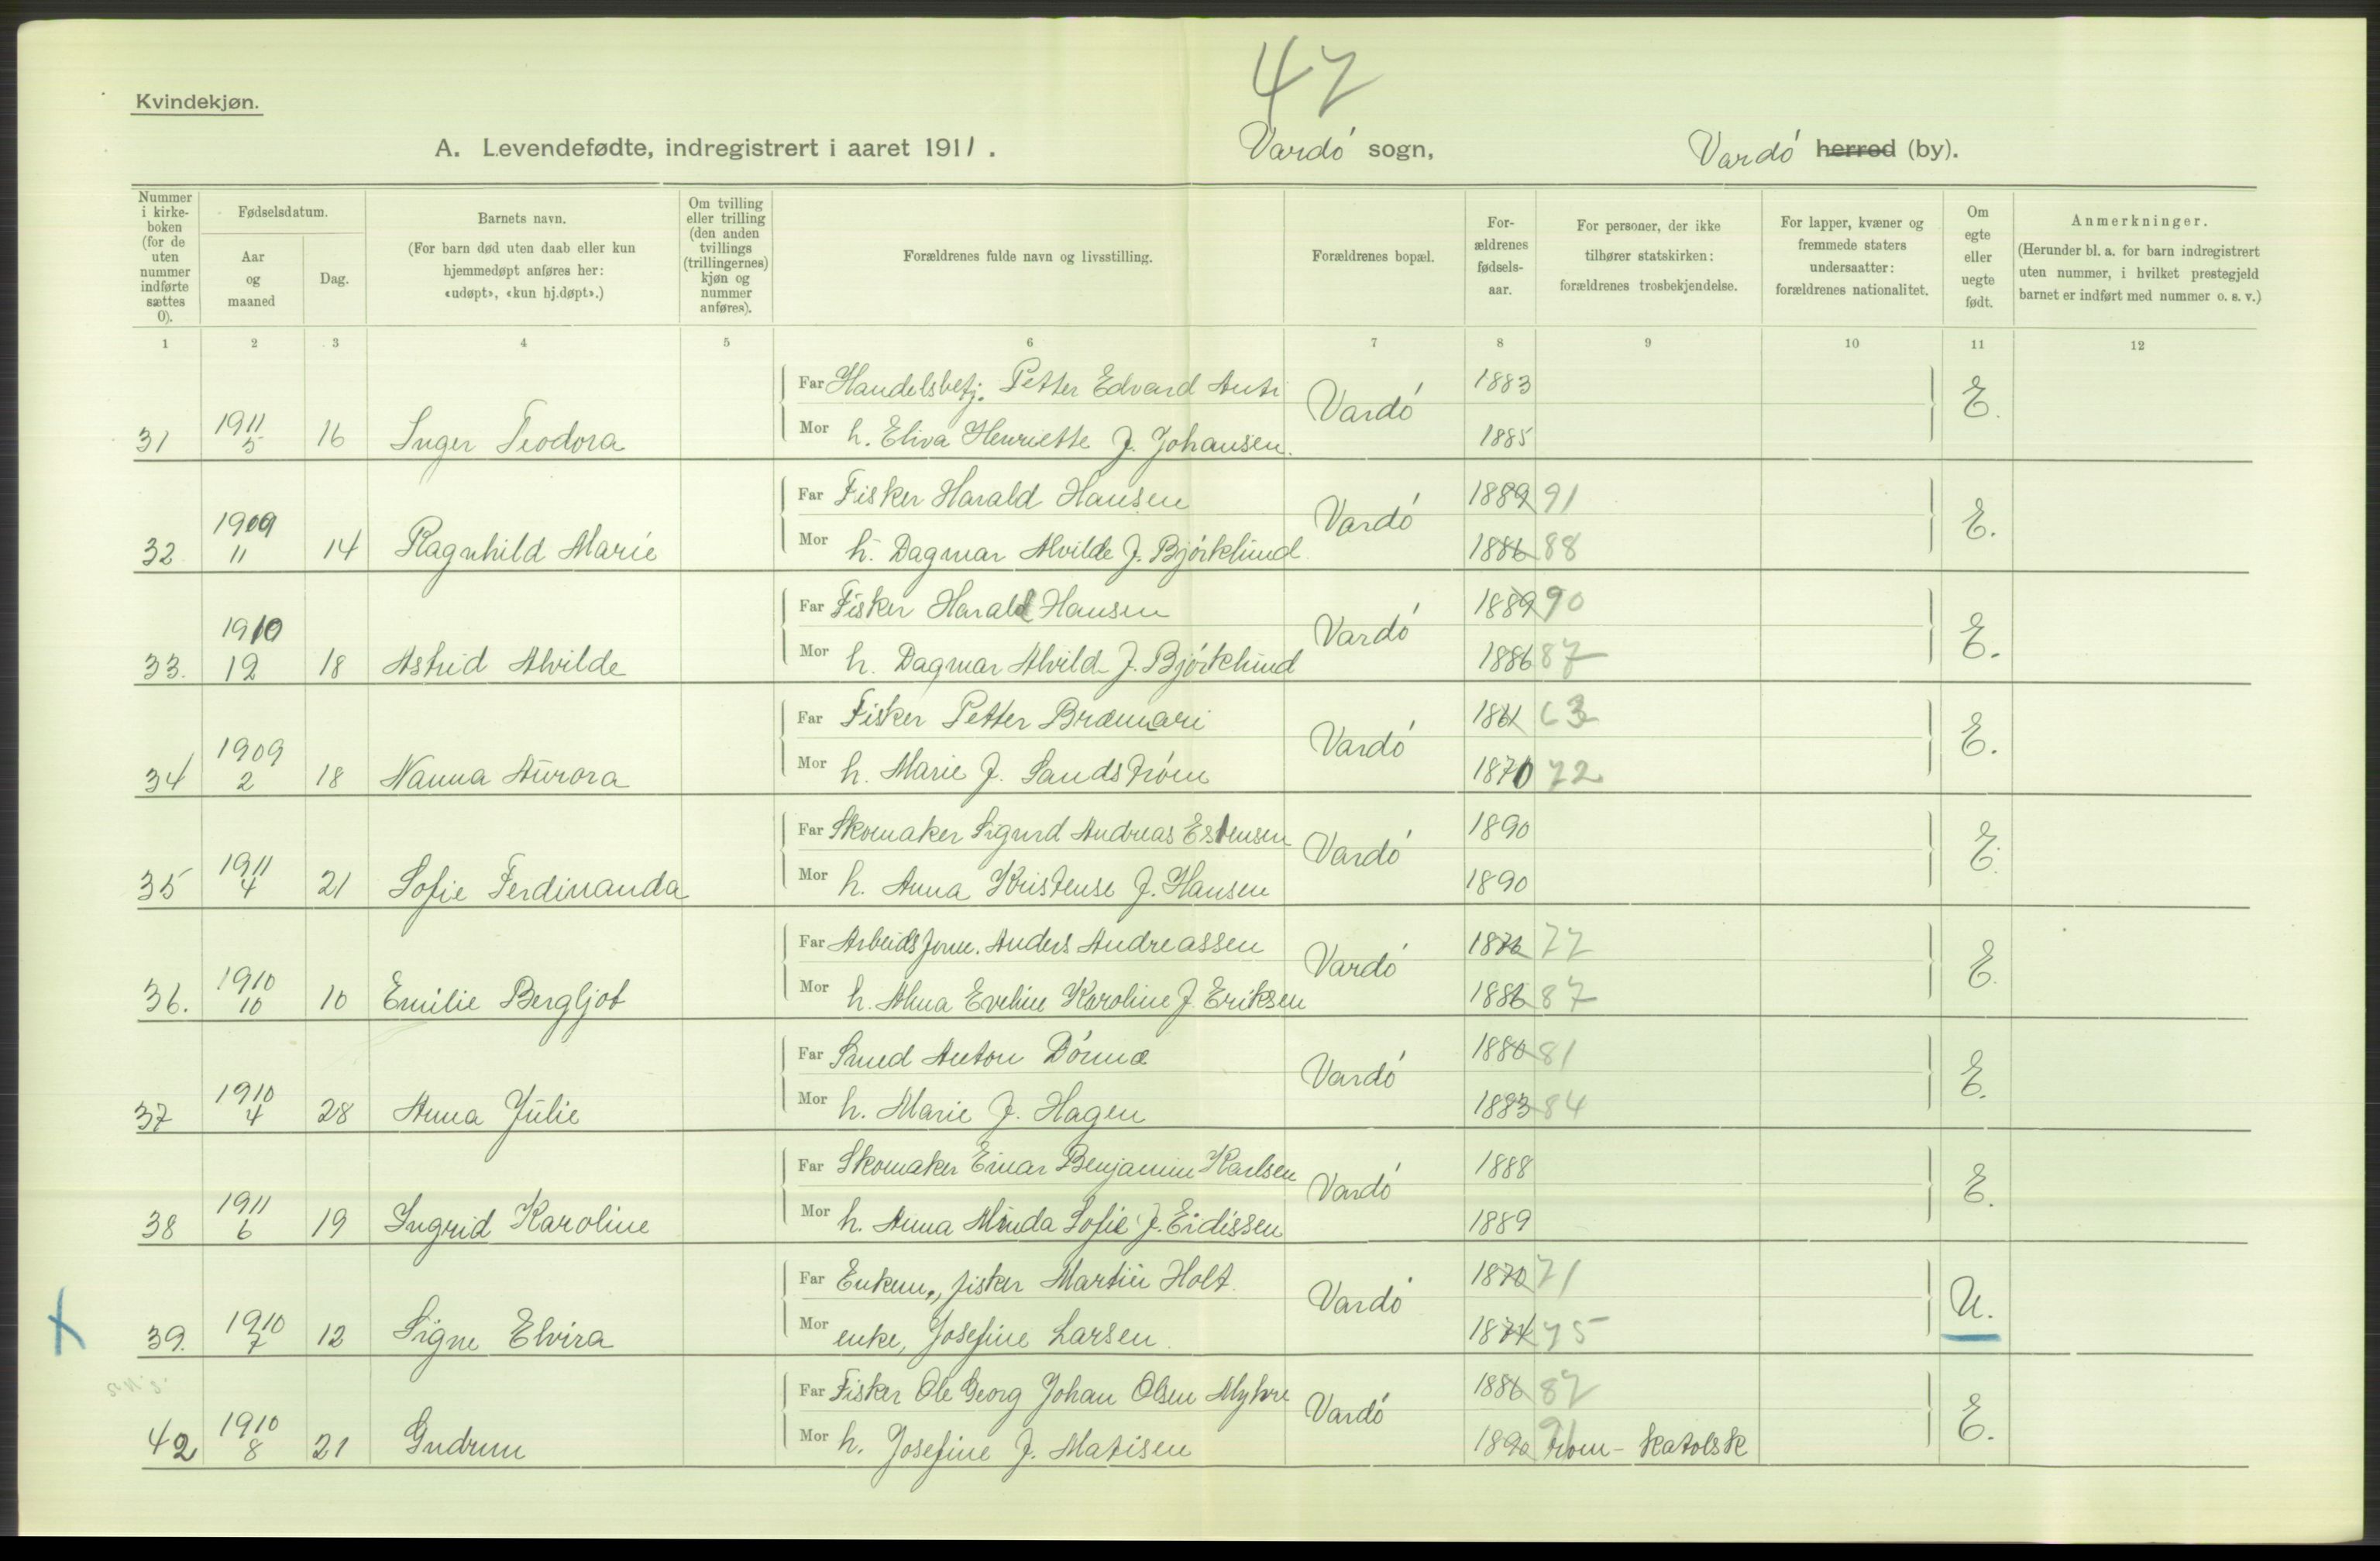 47
Kvindekjøn.
A. Levendefødte, indregistrert i aaret 1911. Vardó sogn, Vardó herred (by).
Nummer i kirke-boken (for de uten nummer indførte sættes 0).
Fødselsdatum.
Aar og maaned
Dag.
Barnets navn.
(For barn død uten daab eller kun hjemmedøpt anføres her: «udøpt», «kun hj.døpt».)
Om tvilling eller trilling (den anden tvillings (trillingernes) kjøn og nummer anføres).
Forældrenes fulde navn og livsstilling.
Forældrenes bopæl.
For-ældrenes fødsels-aar.
For personer, der ikke tilhører statskirken: forældrenes trosbekjendelse.
For lapper, kvæner og fremmede staters undersaatter: forældrenes nationalitet.
Om egte eller uegte født.
Anmerkninger.
(Herunder bl. a. for barn indregistrert uten nummer, i hvilket prestegjeld barnet er indført med nummer o. s. v.)
1 2 3 4 5 6 7 8 9 10 11 12
Far Handelsbetj. Petter Edvard Anti Vardó 1883 E.
31 1911 5 16 Inger Teodora Mor h. Eliva Henriette f. Johansen. 1885
Far Fisker Harald Hansen Vardó 1889 91 E.
32 1909 11 14 Ragnhild Marie Mor h. Dagmar Alvilde f. Bjórklund 1886 88
Far Fisker Harald Hansen Vardó 1889 90 E.
33. 1910 12 18 Astrid Alvilde Mor h. Dagmar Alvild f. Bjórklund 1886 87
Far Fisker Petter Bræmari Vardó 1861 63 E.
34 1909 2 18 Nanna Aurora Mor h. Marie f. Sandstróm 1870 72
Far Skomaker Sigurd Andreas Estensen Vardó 1890 E.
35 1911 4 21 Sofie Ferdinanda Mor h. Anna Kristense f. Hansen 1890
Far Arbeidsform. Anders Andreassen Vardó 1876 77 E.
36. 1910 10 10 Emilie Bergljot Mor h. Alma Eveline Karoline f. Eriksen 1886 87
Far Smed Anton Dónnæ Vardó 1880 81 E.
37 1910 4 28 Anna Julie Mor h. Marie f. Hagen 1883 84
Far Skomaker Einar Benjamin Karlsen Vardó 1888 E.
38 1911 6 19 Ingrid Karoline Mor h. Anna Minda Sofie f. Eidissen 1889
Far Enkem., fisker Martin Holt. Vardó 1870 71 U.
39. 1910 7 12 Signe Elvira Mor enke, Josefine Larsen. 1874 75
Far Fisker Ole Georg Johan Olsen Myhre Vardó 1886 87 E.
42 1910 8 21 Gudrun Mor h. Josefine f. Matisen 1890 91 rom-katolsk